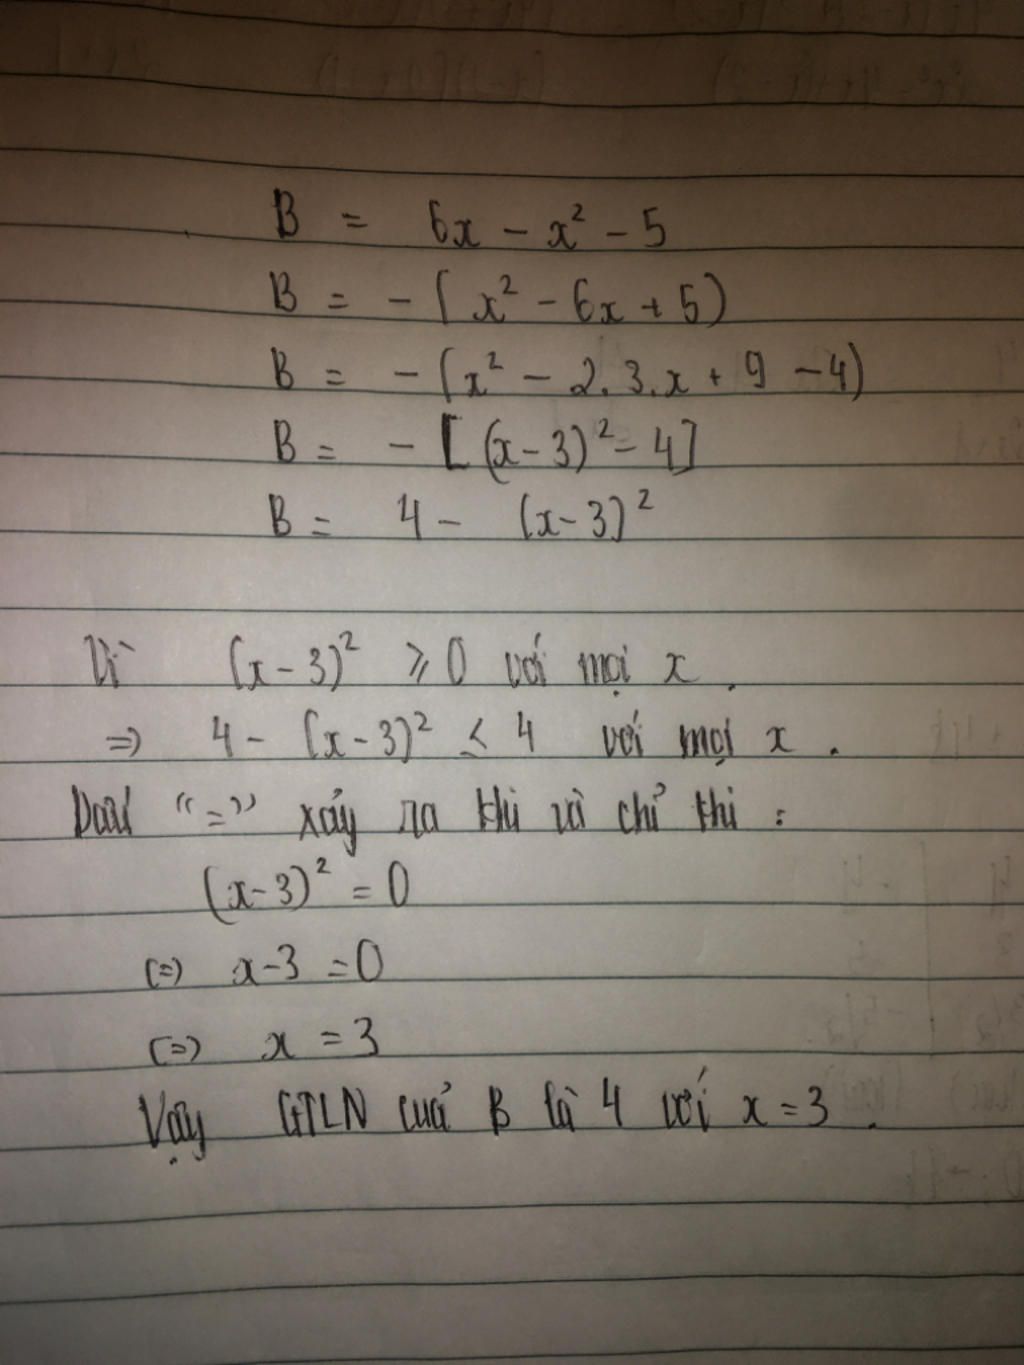 B = 6x - x² - 5
B = - (x² - 6x + 5)
B = - (x² - 2.3.x + 9 - 4)
B = - [(x-3)² - 4]
B = 4 - (x-3)²
Vì (x-3)² ⩾ 0 với mọi x.
=> 4 - (x-3)² ≤ 4 với mọi x.
Dấu "=" xảy ra khi và chỉ khi :
(x-3)² = 0
(=) x-3 = 0
(=) x = 3
Vậy GTLN cuả B là 4 với x = 3.